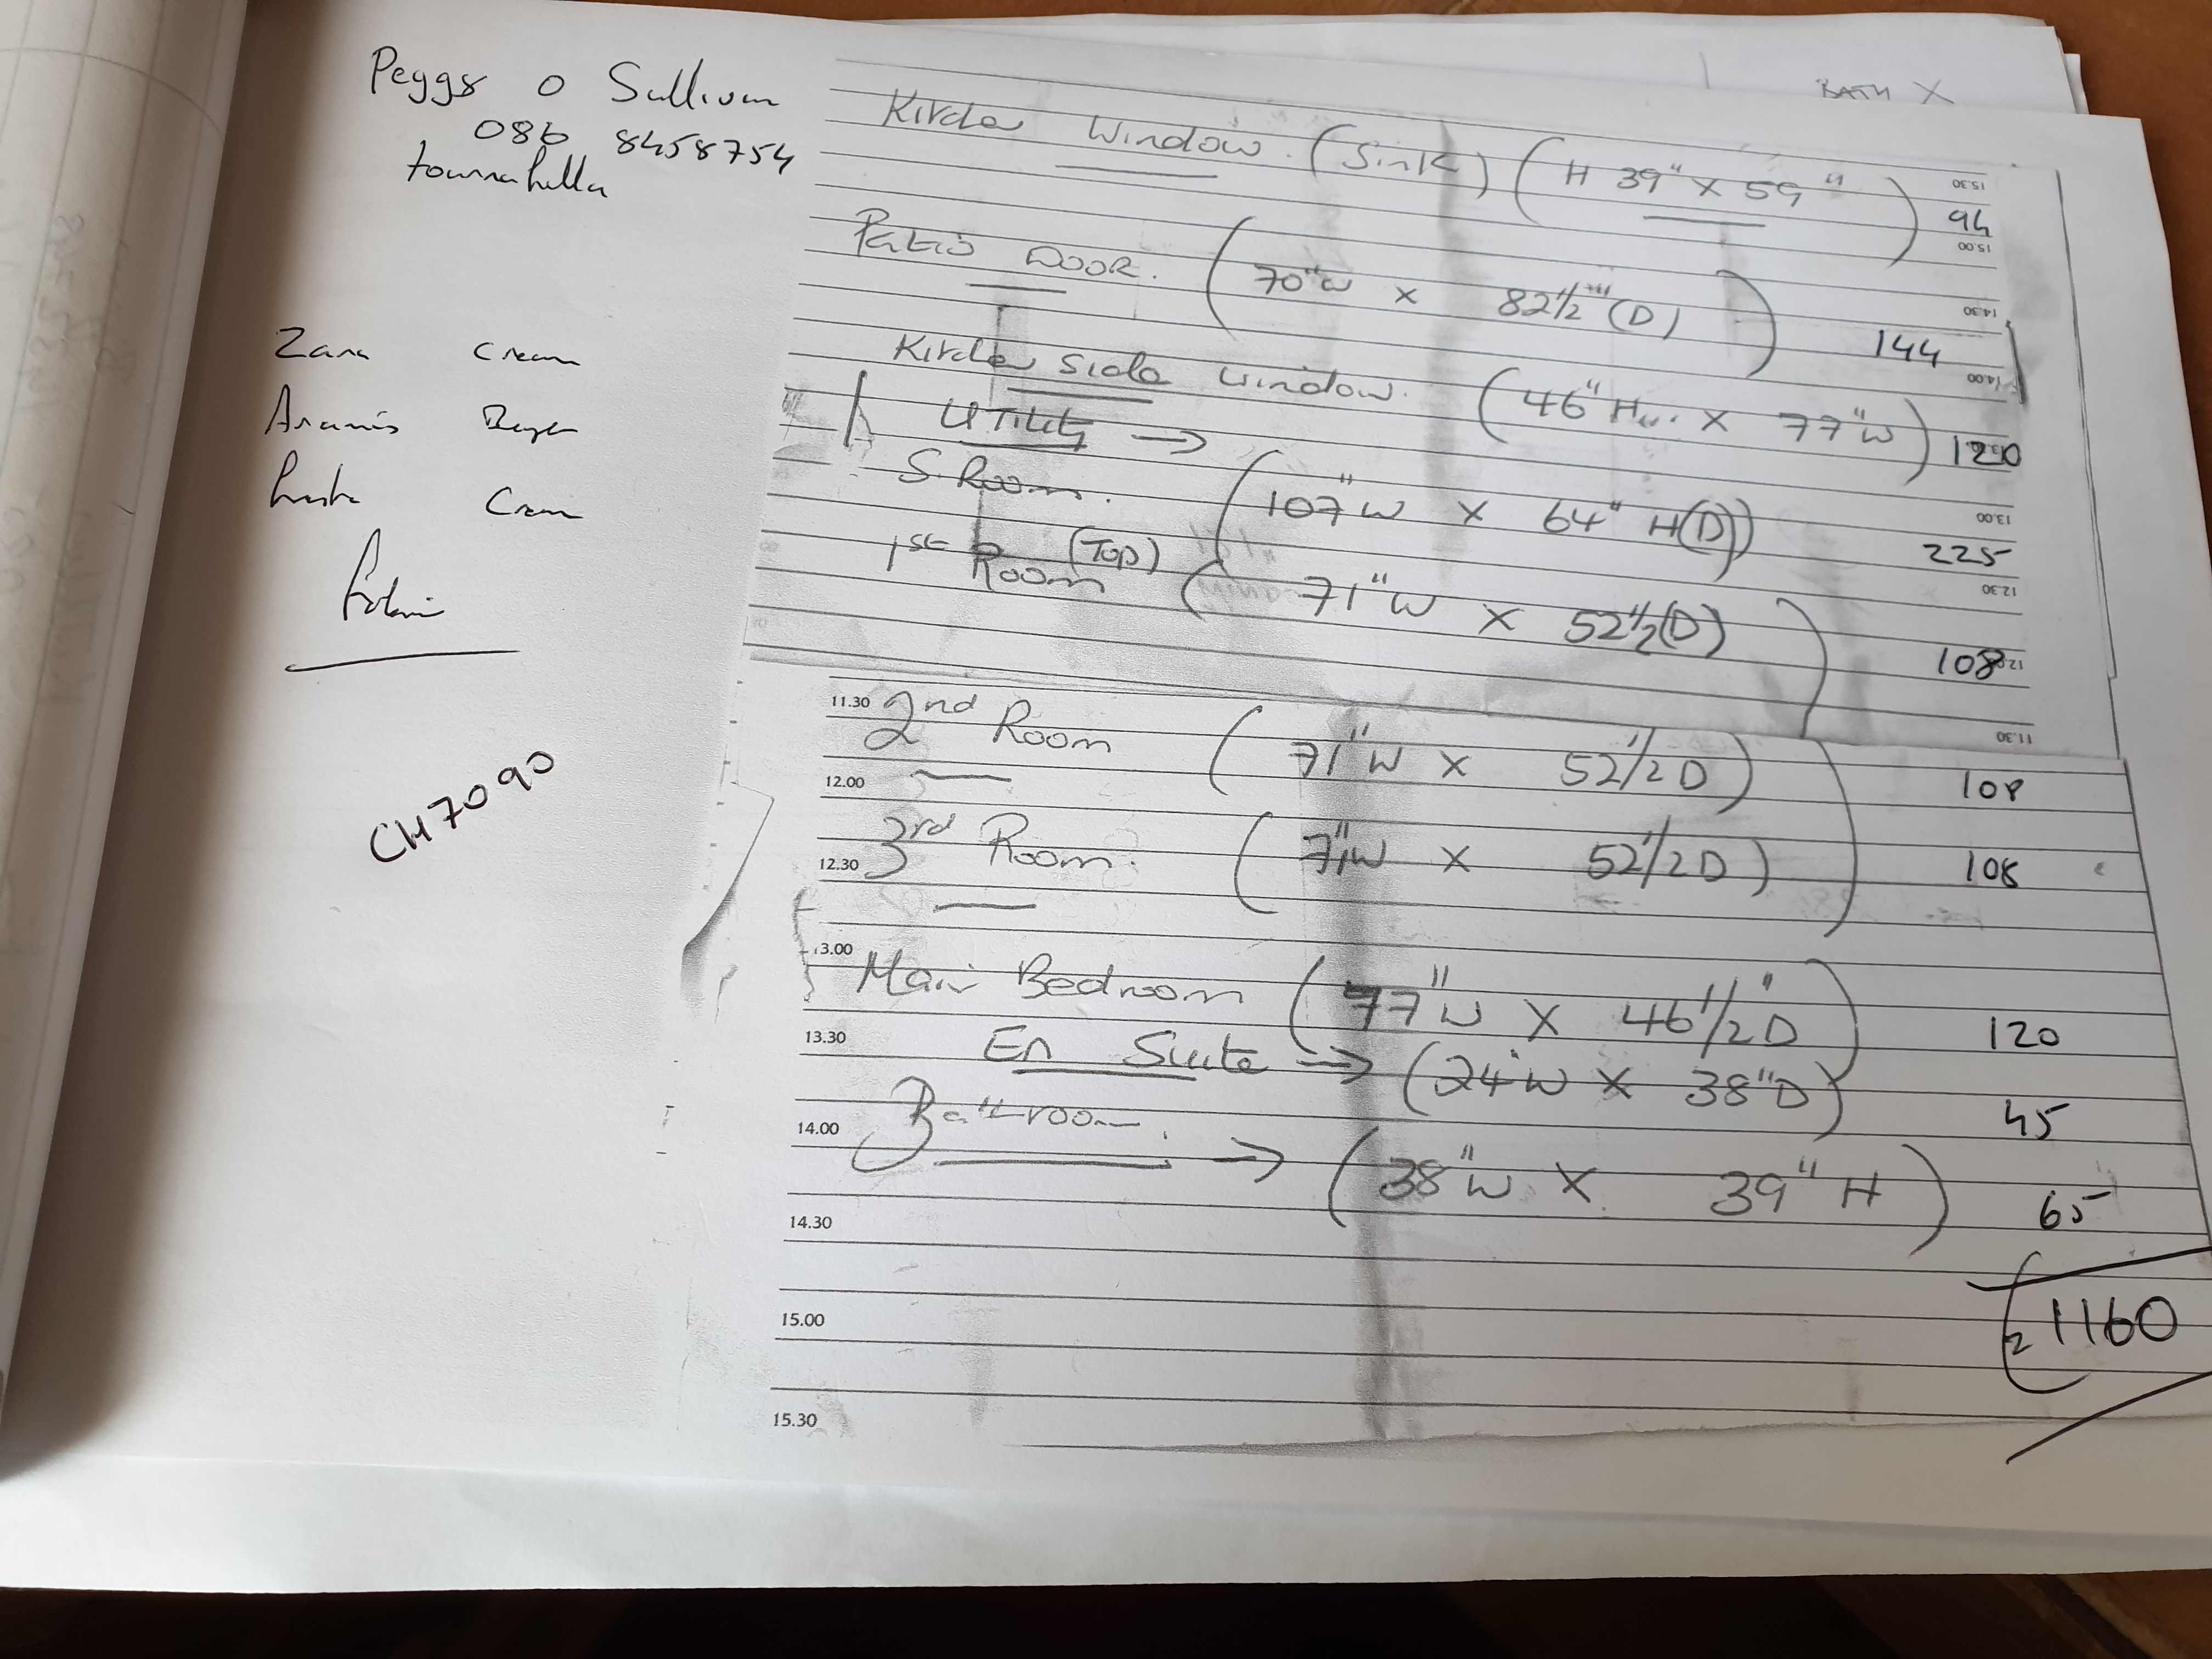 Peggy O Sullivan
086 8458754
BATH X
Kitchen Window. (Sink) (H 39" X 59")
94
15.30
15.00
Patio DOOR. (70"W X 82 1/2" (D))
144
14.30
14.00
Kitchen Side Window. (46" H X 77"W)
120
UTILITY →
S. Room. (107"W X 64" H(D))
225
13.00
12.30
1st Room (TOP) (71"W X 52 1/2(D))
108
11.30
11.30 2nd Room (71"W X 52 1/2 D)
108
12.00
12.30 3rd Room. (71"W X 52 1/2 D)
108
13.00
Main Bedroom (77"W X 46 1/2" D)
120
13.30
En Suite → (24"W X 38"D)
45
14.00 Bathroom. → (38"W X 39" H)
65
14.30
1160
15.00
15.30
Zara Cream
Aramis Beige
Cream
CH7090